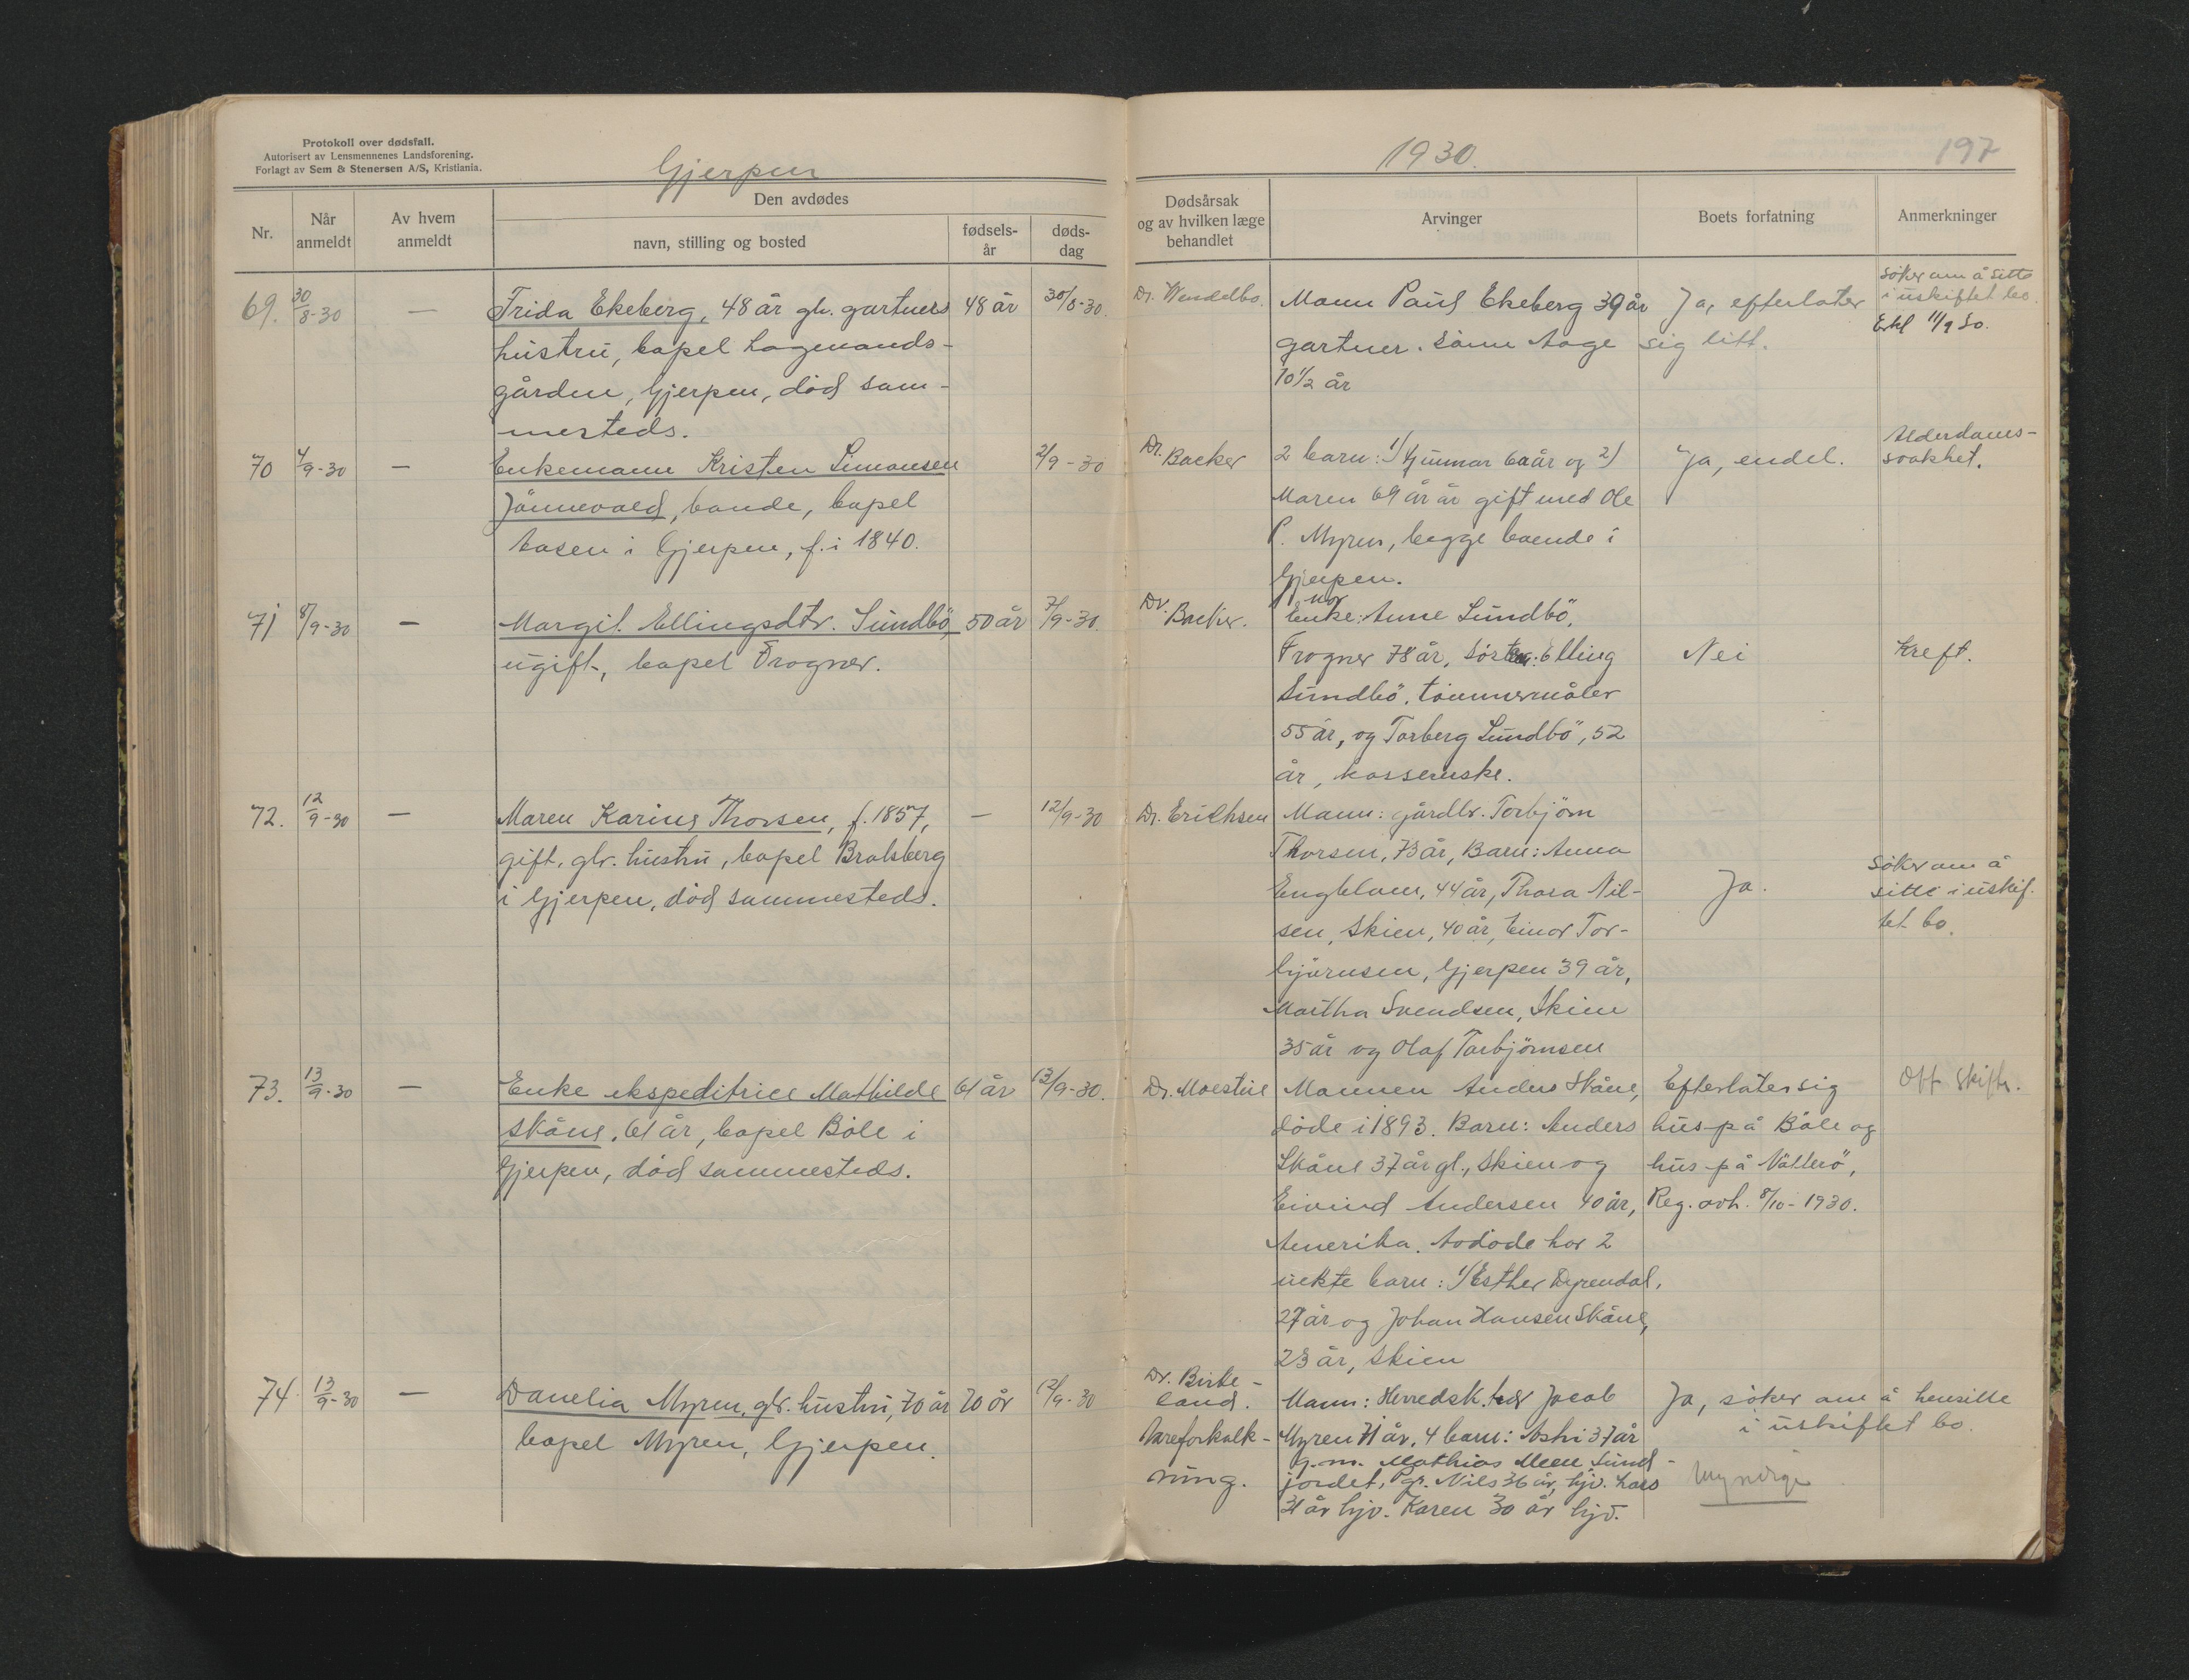 Protokoll over dødsfall.
Autorisert av Lensmennenes Landsforening.
Forlagt av Sem & Stenersen A/S, Kristiania.
Gjerpen
Nr.
Når anmeldt
Av hvem anmeldt
Den avdødes
navn, stilling og bosted
fødsels-år
døds-dag
69. 30/8-30 — Frida Ekeberg, 48 år glv. gartners 48 år 30/8-30.
hustru, bopel Lagmands-
gården, Gjerpen, död sam-
mesteds.
70 4/9-30 — Enkemann Kristen Simonsen 2/9-30
Jönnevald, bonde, bopel
Aasen i Gjerpen, f. i 1840.
71 8/9-30 — Margit Ellingsdtr. Sundbö, 50 år 7/9-30.
ugift, bopel Frogner.
72. 12/9-30 — Maren Karine Thorsen, f. 1857, — 12/9-30
gift, glv. hustru, bopel Bratsberg
i Gjerpen, död sammesteds.
73. 13/9-30 — Enke ekspeditrice Mathilde 61 år 13/9-30.
Skåne, 61 år, bopel Böle i
Gjerpen, död sammesteds.
74 13/9-30 — Danelia Myren, glv. hustru, 70 år 70 år 12/9-30
bopel Myren, Gjerpen.
1930.
197
Dødsårsak
og av hvilken læge
behandlet
Arvinger
Boets forfatning
Anmerkninger
Dr. Wendelbo.
Mann Paul Ekeberg 39 år
gartner. Sönn Aage
10½ år
Ja, efterlater
sig litt.
Söker om å sitte
i uskiftet bo.
Erkl 11/9 30.
Dr. Backer
2 barn: 1/ Gunnar 60 år og 2/
Maren 69 år är gift med Ole
P. Myren, begge boende i
Gjerpen.
Ja, endel.
Alderdoms-
svakhet.
Dr. Backer.
mor
Enke: Anne Sundbö,
Frogner 78 år, Sösken: Elling
Sundbö, tömmermåler
55 år, og Torberg Sundbö, 52
år, kasserske.
Nei
Kreft.
Dr. Erichsen
Mann: gårdbr. Torbjörn
Thorsen, 73 år, Barn: Anna
Engblom, 44 år, Thora Nil-
sen, Skien, 40 år, Einar Tor-
björnsen, Gjerpen 39 år,
Martha Svendsen, Skien
35 år og Olaf Torbjörnsen
Ja.
Söker om å
sitte i uskif-
tet bo.
Dr. Moestue
Mannen Anders Skåne,
döde i 1893. Barn: Anders
Skåne 37 år gl., Skien og
Eivind Andersen 40 år,
Amerika. Avdöde har 2
uekte barn: 1/ Esther Dyrendal,
27 år og Johan Hansen Skåne,
23 år, Skien
Efterlater sig
hus på Böle og
hus på Nätterö,
Reg. avh. 8/10-1930.
Off. skifte.
Dr. Birke-
land.
Aareforkalk-
ning.
Mann: Herredsk. Jacob
Myren 71 år, 4 barn: Aslu 37 år
g.m. Mathias Meen Sund-
jordet, Pgr. Nils 36 år, hjv. Lars
31 år hjv. Karen 30 år hjv.
Ja, söker om å hensitte
i uskiftet bo.
Myndige